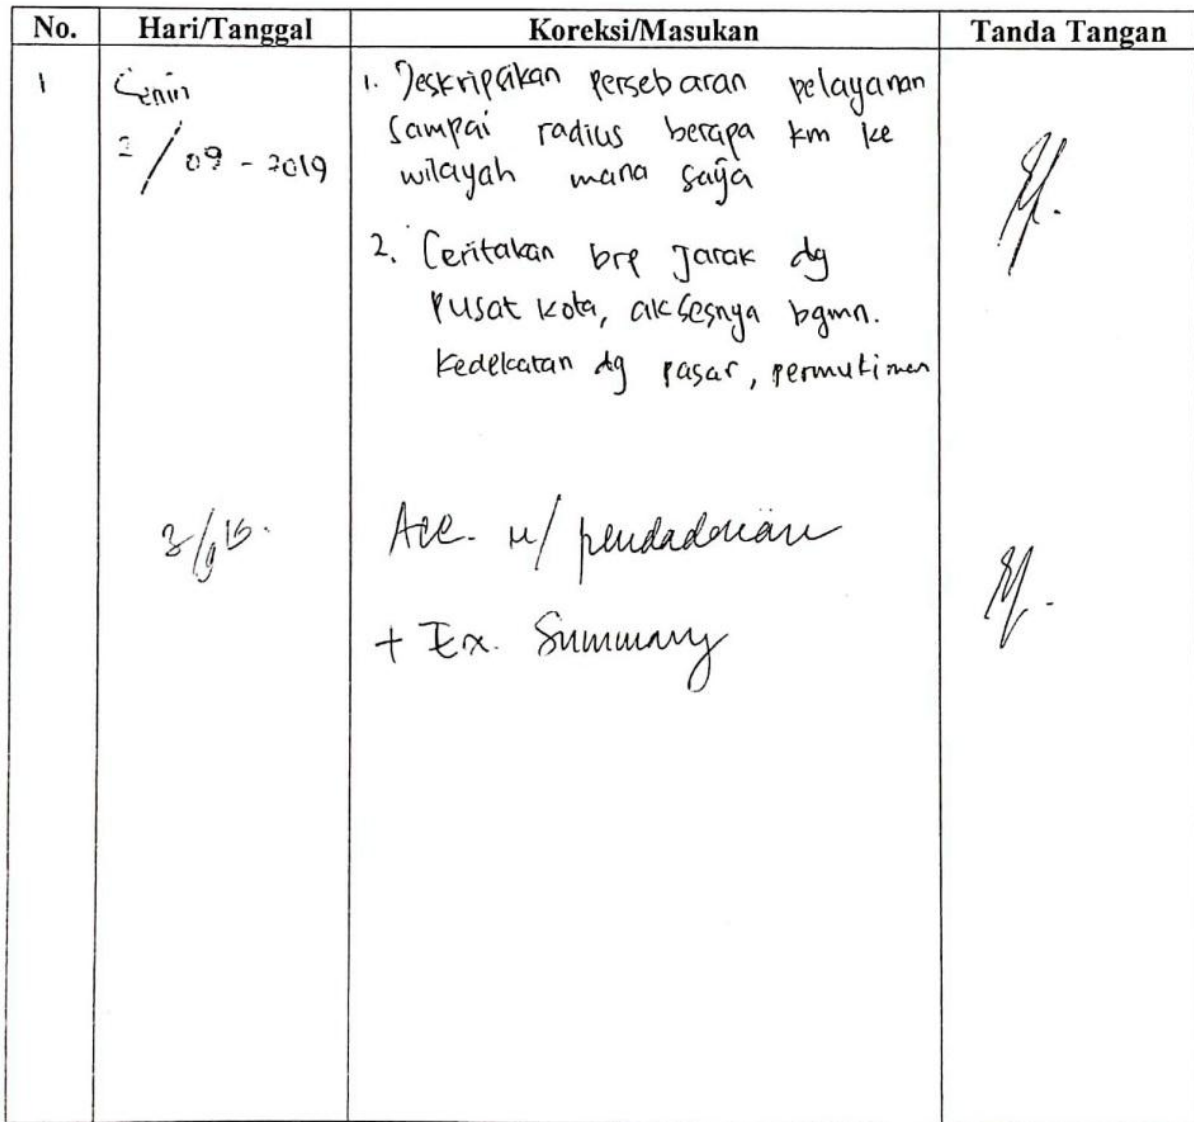 No. Hari/Tanggal Koreksi/Masukan Tanda Tangan
1 Senin 1. Deskripsikan persebaran pelayanan
2/09-2019 sampai radius berapa km ke
wilayah mana saja
2. Ceritakan brp Jarak dg
pusat kota, aksesnya bgmn.
Kedekatan dg pasar, permukiman
Acc. u/ pendadaran
+ Ex. Summary